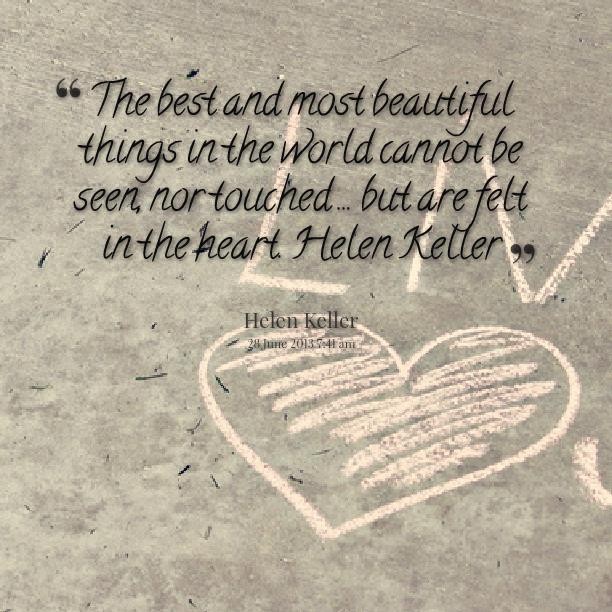 “ The best and most beautiful
things in the world cannot be
seen, nor touched ... but are felt
in the heart. Helen Keller ”
Helen Keller
28 June 2013 7:41 am